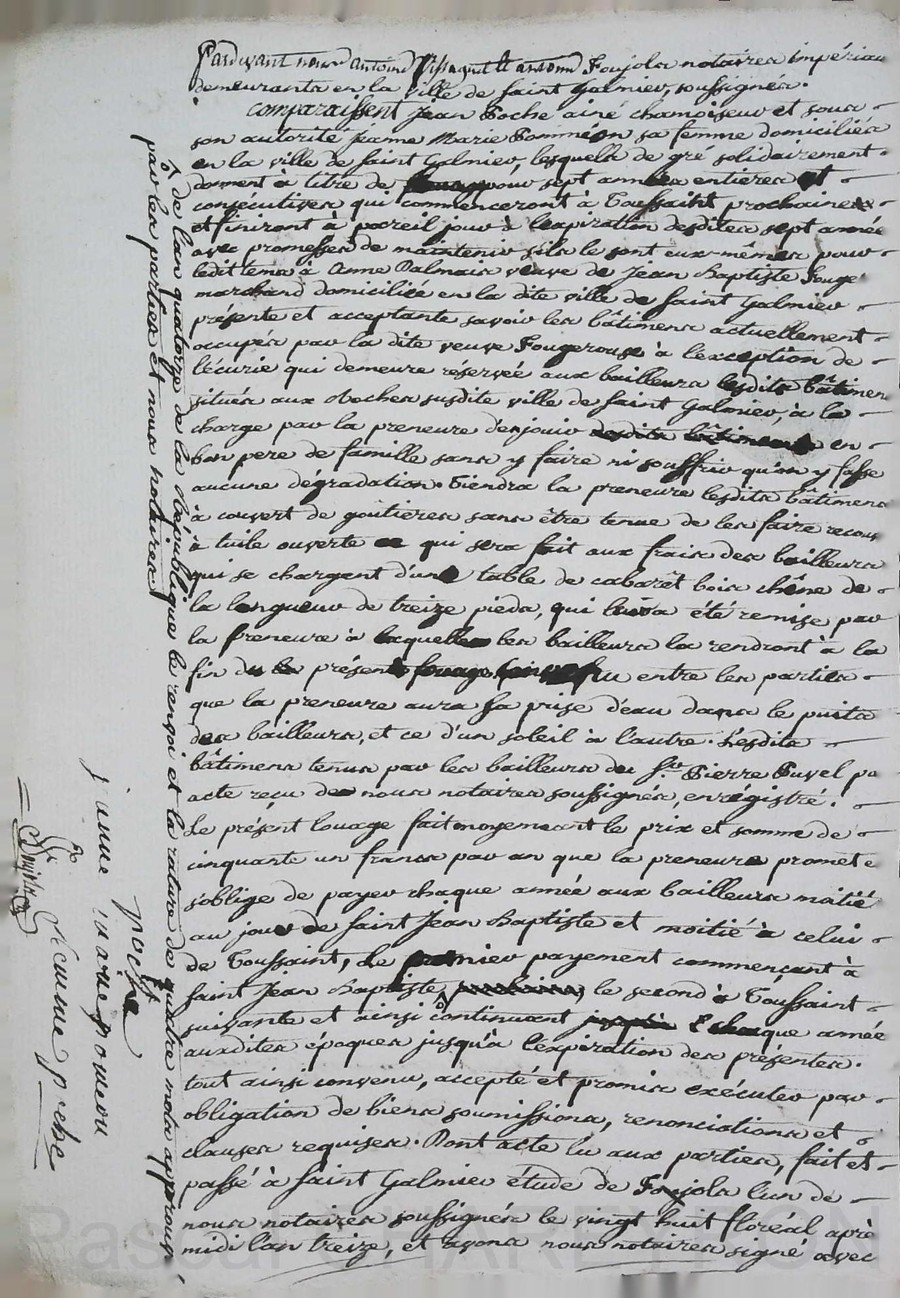 Pardevant nous antoine et antoine Foujols notaires impériau
demeurants en la ville de saint Galmier, soussignés.
Comparaissent Jean Poche ainé chamoiseur et sous
son autorité Jeanne Marie Pommeon sa femme domiciliés
en la ville de saint Galmier, lesquels de gré solidairement
donnent à titre de pour sept années entieres et
consécutives qui commenceront à Toussaint prochaine
et finiront à pareil jour à l'expiration desdites sept année
avec promesses de maintenir s'ils le sont eux-mêmes pour
ledit tems à Anne Dalmais veuve de Jean Baptiste Fouge
marchand domiciliée en la dite ville de saint Galmier
présente et acceptante savoir les bâtimens actuellement
occupés par la dite veuve Fougerouse à l'exception de
l'écurie qui demeure réservée aux bailleurs lesdits bâtimen
situés aux Roches susdite ville de saint Galmier, à la
charge par la preneure d'en jouir desdits bâtiments en
bon pere de famille sans y faire ni souffrir qu'on y fasse
aucune dégradation. Tiendra la preneure lesdits bâtimens
à couvert de goutieres sans être tenue de les faire recou
à tuile ouverte ce qui sera fait aux frais des bailleurs
qui se chargent d'une table de cabarêt bois chêne de
la longueur de treize pieds, qui leur a été remise par
la preneure à laquelle les bailleurs la rendront à la
fin du présent louage entre les parties
que la preneure aura sa prise d'eau dans le puits
des bailleurs, et ce d'un soleil à l'autre. Lesdits
bâtimens tenus par les bailleurs du Sr. Pierre Puvel pa
acte reçu de nous notaires soussignés, enrégistré.
Le présent louage fait moyennant le prix et somme de
cinquante un francs par an que la preneure promet e
s'oblige de payer chaque année aux bailleurs moitié
au jour de saint Jean Baptiste et moitié à celui
de Toussaint, Le premier payement commençant à
saint Jean Baptiste prochains, le second à Toussaint
suivante et ainsi continuant chaque année
auxdites époques jusqu'à l'expiration des présentes.
tout ainsi convenu, accepté et promis exécuter par
obligation de biens soumissions, renonciations et
clauses requises. Dont acte lu aux parties, fait et
passé à saint Galmier étude de Foujols l'un de
nous notaires soussignés le vingt huit floréal après
midi l'an treize, et avons nous notaires signé avec
de l'an quatorze de la République le renvoi et la rature de quatre mots approuv
par les parties et nous notaires
poche
jeanne marie pomeon
femme poche
Pascal CHARETTRON